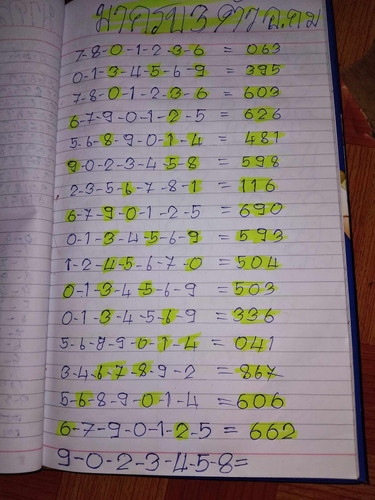 มาครบ 3 ตัว
7-8-0-1-2-3-6 = 063
0-1-3-4-5-6-9 = 395
7-8-0-1-2-3-6 = 603
6-7-9-0-1-2-5 = 626
5-6-8-9-0-1-4 = 481
9-0-2-3-4-5-8 = 598
2-3-5-6-7-8-1 = 116
6-7-9-0-1-2-5 = 690
0-1-3-4-5-6-9 = 593
1-2-4-5-6-7-0 = 504
0-1-3-4-5-6-9 = 503
0-1-3-4-5-6-9 = 336
5-6-8-9-0-1-4 = 041
3-4-6-7-8-9-2 = 867
5-6-8-9-0-1-4 = 606
6-7-9-0-1-2-5 = 662
9-0-2-3-4-5-8=